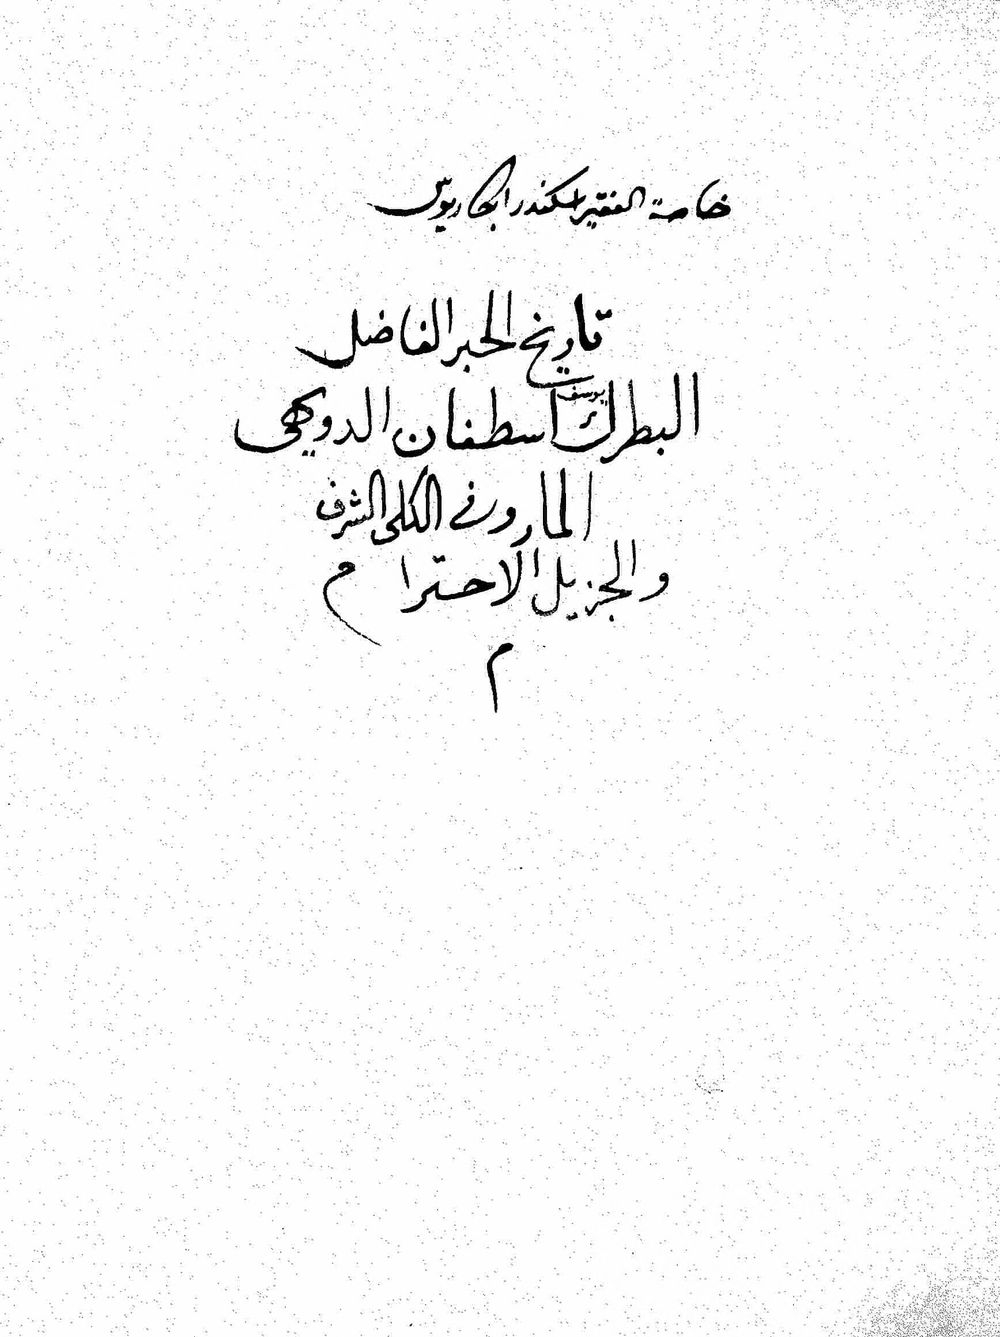 خاصة الفقير اسكندر ابكاريوس
تاريخ الحبر الفاضل
البطرك يوسف اسطفان الدويهي
الماروني الكلي الشرف
والجزيل الاحترام
م